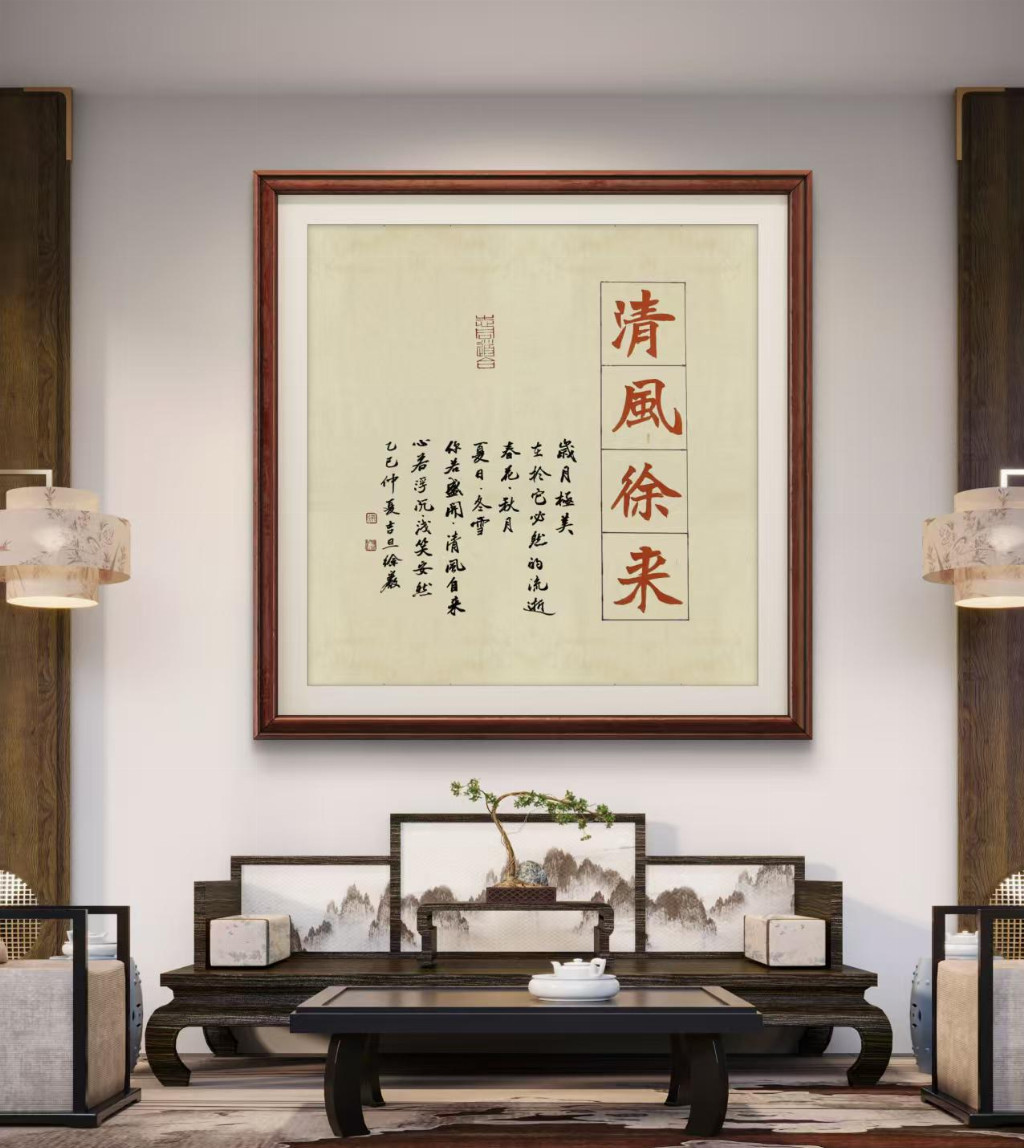 清風徐来
歲月極美
在於它必然的流逝
春花·秋月
夏日·冬雪
你若盛開·清風自来
心若浮沉·浅笑安然
乙巳仲夏吉旦徐嚴
志同道合